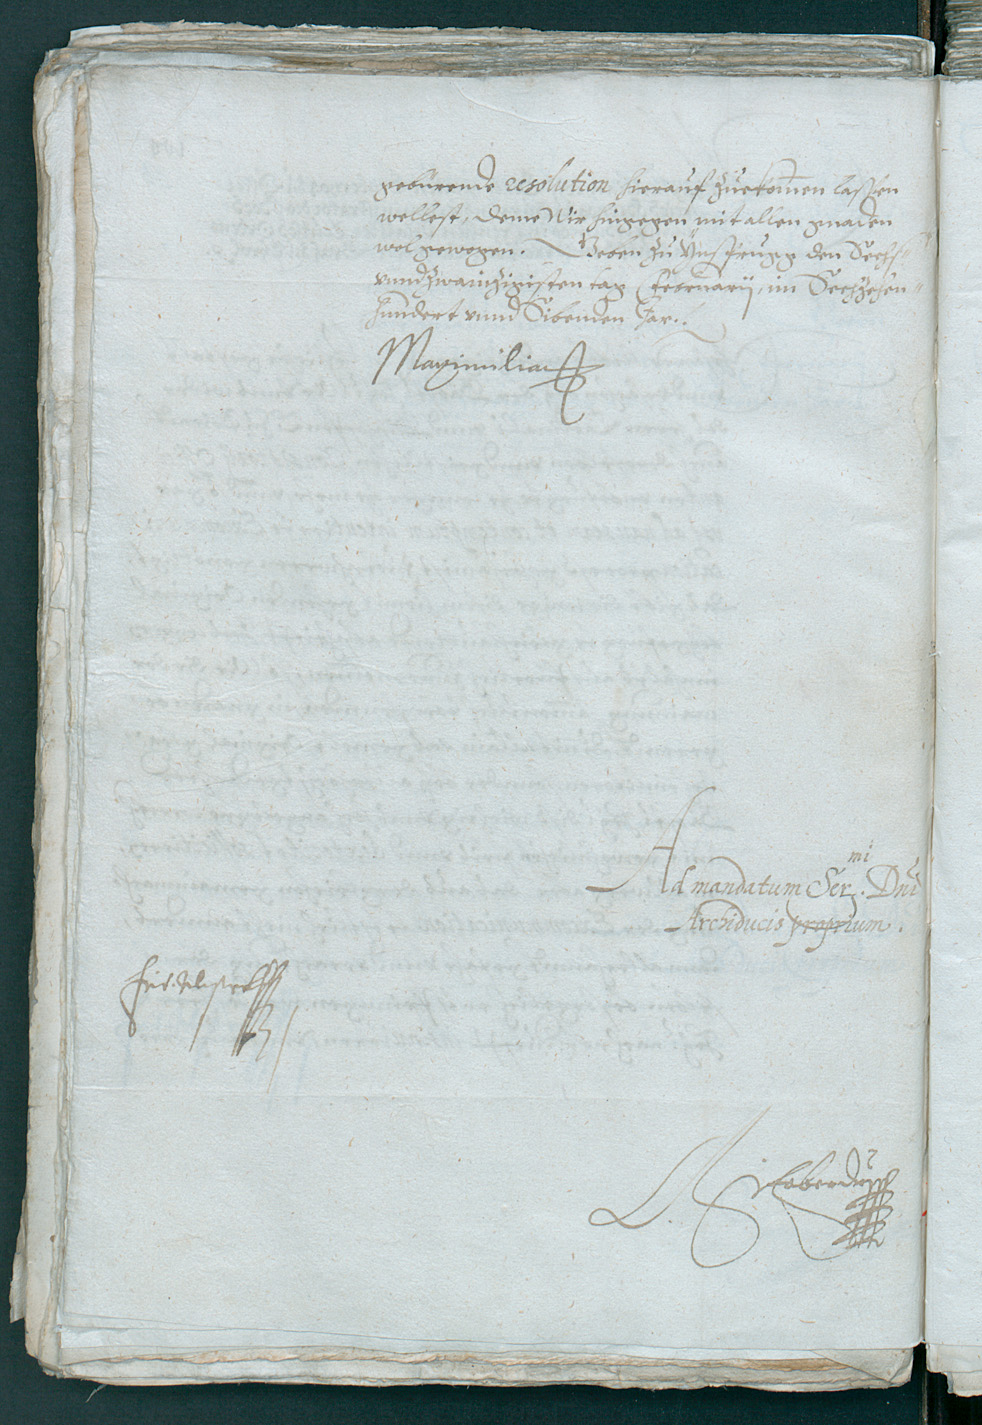 gebürende resolution hierauf zuekom̄en laßen
wellest, deme Wir hingegen mit allen gnaden
wol gewogen. Geben zu Ynsprugg den Sechs-
vnnd zwainzigisten tag Februarij, im Sechzehen-
hundert vnnd Sibenden Jar.
Maximilian
Ad mandatum Ser.mi Dni
Archiducis proprium.